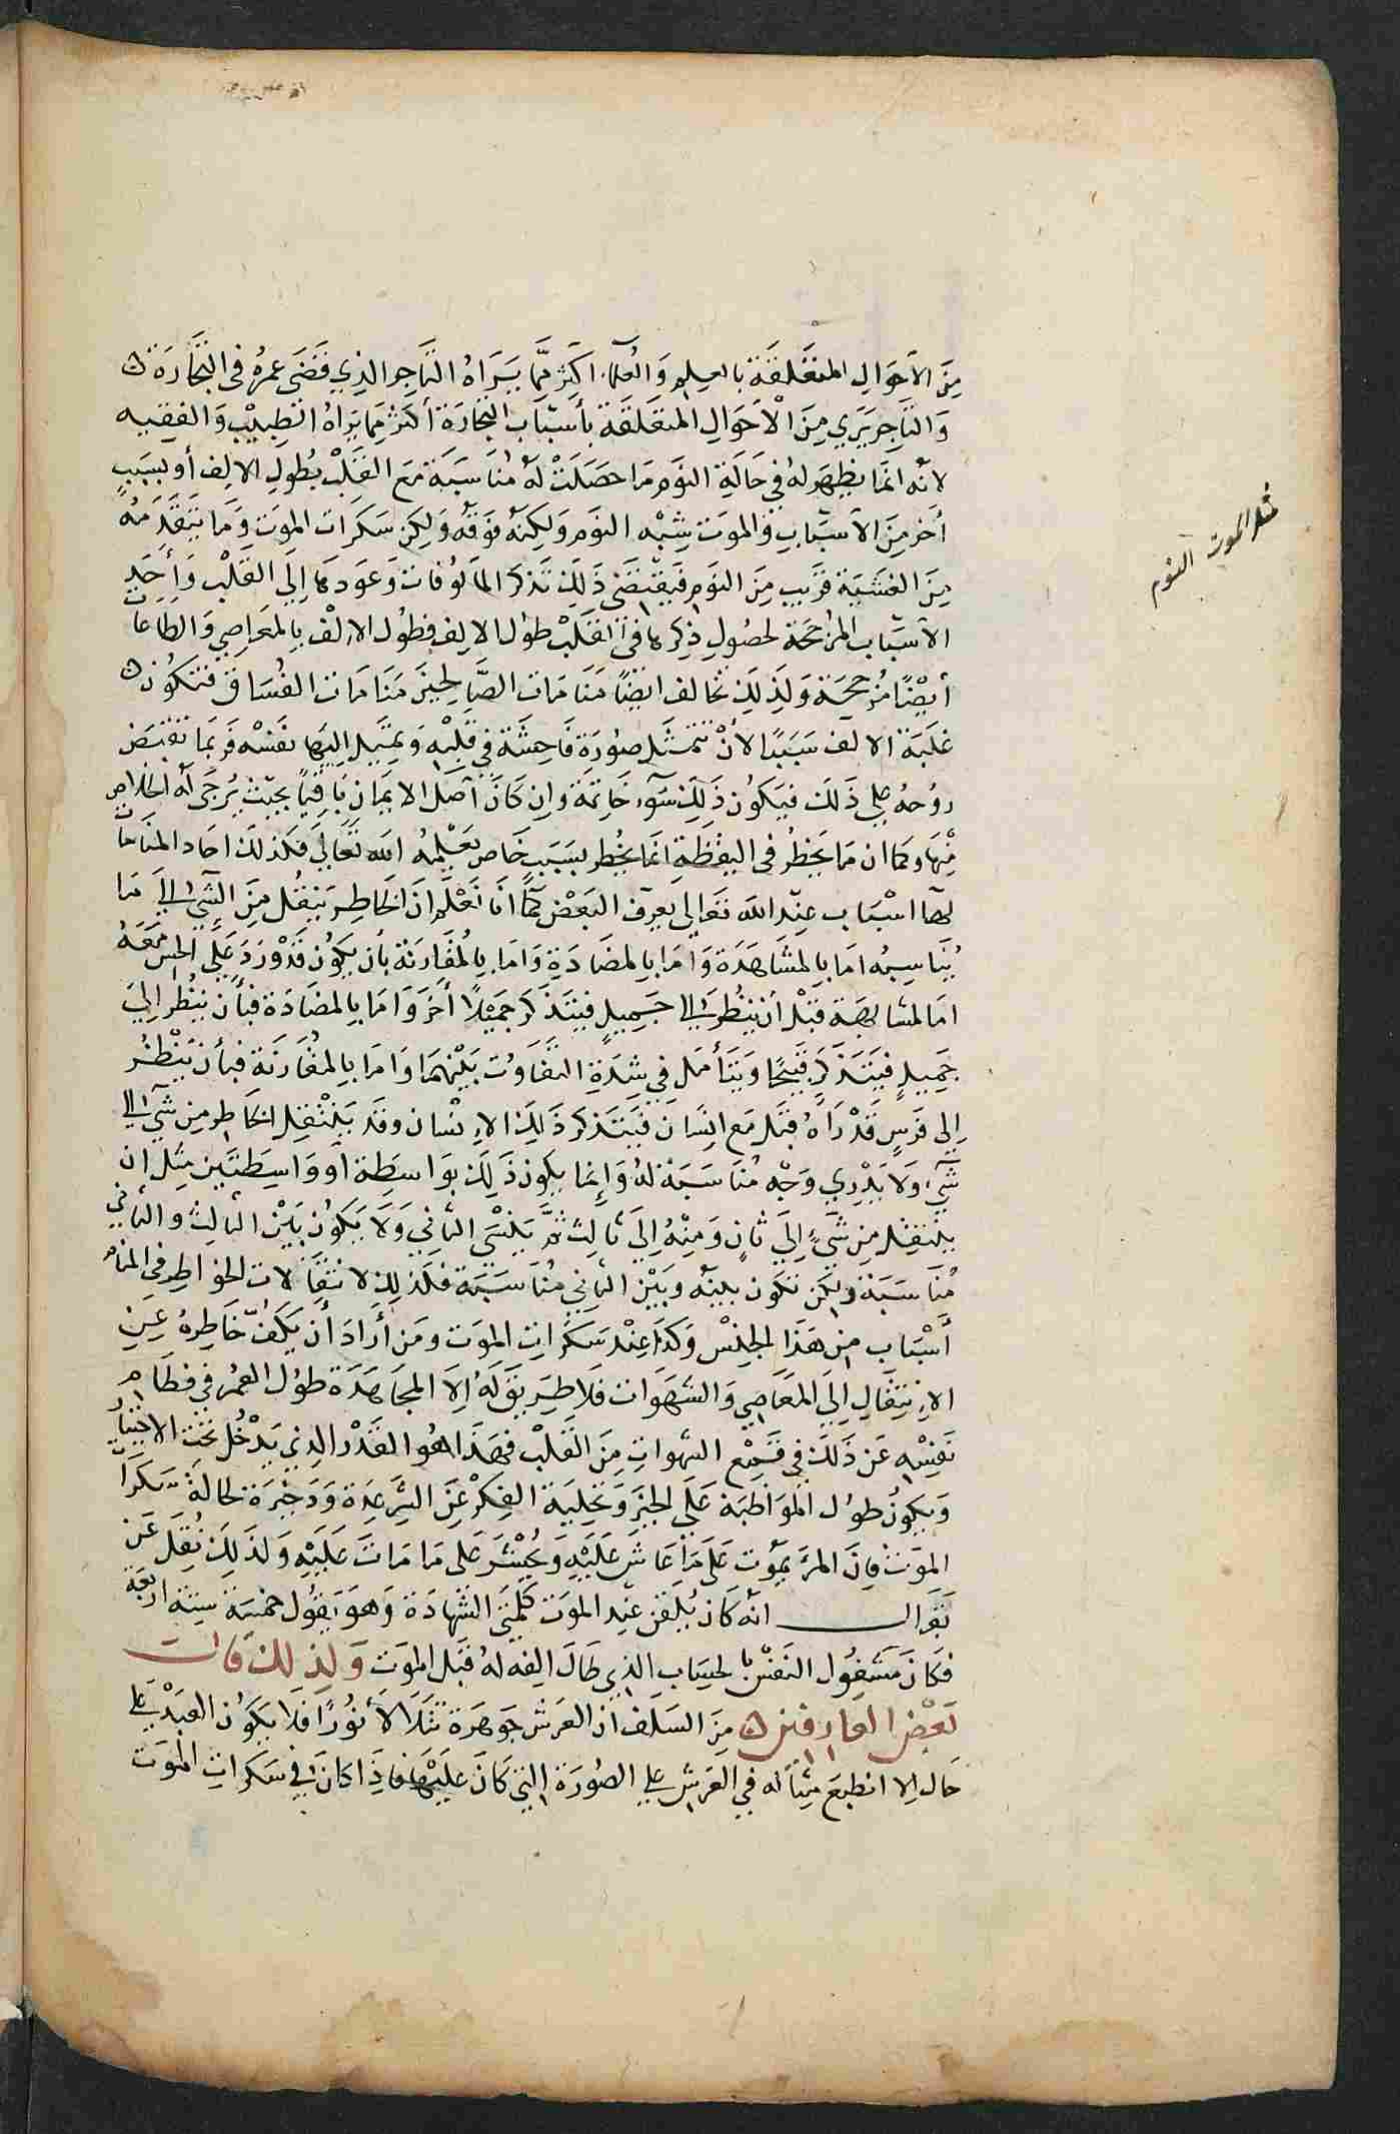 مِنَ الاَحوَالِ المتعَلقَة بالعِلم وَالعُلمآء اكَثر مِمّا يَرَاهُ التَاجِر الذِي قَضَى عمرُهُ فى التِجَارَة
وَالتَاجِر يَرَي مِنَ الْاحَوَالِ المتعَلقَة بأسبَاب التجَارَة أكثر مِمَا يرَاهُ الطبيْب وَالفقِيه
لانه انمَا يظهَر لهُ فى حَالَةِ النوَم مَا حصَلَتْ لَهُ مُنَاسَبَة مَعَ القلبْ بُطولِ الالِف أو بسَبَبٍ
أُخرمِنَ الآسبَابِ وَالموَت شِبْه النوَم وَلكِنهُ فوَقهُ وَلكِن سَكَرات الموَت وَمَا يتَقَدَمهُ
مِنَ الغشيَة قرَيب مِنَ النوَم فيَقتضَى ذَلِكَ تَذكر المَألوُفات وَعَودهَا إلَى القَلبْ وَأَحَد
الآسبَاب المُرَجحَة لحصُولِ ذِكرهَا فى القَلبْ طوُل الالِف فطوُل الاِلْف بِالمعَاصِي وَالطَاعَات
أيْضًا مُرَجحَة وَلذِلَكِ تخَالف ايضًا مَنَامَات الصَّالِحِينَ مَنَامَات الفُسَاق فتَكوُن
غلبَة الالف سَبَبًا لاَنْ تتمثَل صوُرَة فاحِشَة فى قَلِبْه وَيَميَل اليَها نفسْه فرَبمَا تقبَض
روُحهُ على ذَلكَ فيَكوُن ذَلِكَ سُوَء خَاتمَة وإن كَانَ أصَل الايمَان بَاقِيًا بحيَث يُرجَى لَهُ الخلاص
مِنْهَا وكَما ان مَا يَخطُر فى اليقظَةِ انمَا يخُطر بسَبَبٍ خَاصٍ يعَلمهُ الله تعَالَى فكَذلَكَ احَاد المنَامَات
لهَا اسْبَاب عِنْد الله تعَالِى يعَرف البَعْض كمَا انَا نَعْلَم انَ الخَاطِرَ يَنتقُل مِنَ الشَّئ إلىَ مَا
يُنَاسِبهُ امَا بِالمشَابهَة وَامَا بِالمضَادَةِ وَامَا بِالمُقَارنَة بأن يَكوُن قَدْ وَرَدَ عَلَى الحسِ مَعَهُ
امَا المشَابهَة فبَأن ينظُرَ إلى جَميِلٍ فيتَذكَر جَميِلاً أخَرَ وَامَا بِالمضَادَة فبأن ينظُر إلىَ
جمَيلٍ فيَتَذَكَرَ قَبيِحًا وَيَتَأمَل فِي شِدَةِ التفَاوُت بَيْنهمَا وَامَا بِالمُقَارَنَة فبأن يَنْظُر
إِلى فرَسٍ قَدْ رَآهُ قبَل مَع انِسَان فيَتَذكر ذَلِكَ الاِنْسَان وقد يَنْتَقِل الخَاطِر مِن شَئ إلى
شَئ وَلَا يَدْرِي وَجْه مُنَاسَبَة لهُ وَإنمَا يكوُن ذَلِكَ بوَاسِطَة أو وَاسِطتَين مِثل ان
ينتقِل مِن شَئٍ إلَى ثانٍ وَمنهُ إلَى ثالِث ثُمَّ يَنْسَى الثانِي وَلَا يَكوُن بَيْنَ الثالِث والثاني
مُنَاسَبَة وَلكِن تكوُن بينهُ وَبَيْن الثاني مُنَاسَبَة فكَذلِكَ لانتقَالات الخوَاطِر فى المنَام
أسْبَاب مِن هَذَا الجِنْس وَكذَا عِنْد سَكَرَاتِ الموَت وَمَن أرَادَ أن يَكفَّ خَاطِرهُ عِن
الاِنتِقَالِ إِلَى المعَاصِي وَالشهَوَات فَلا طرَيق لَهُ اِلا المجَاهَدَة طوُل العمُر فى فطَام
نفسِه عَن ذَلَكَ فى قَمْع الشهوَاتِ مِنَ القَلبْ فهَذَا هُو القَدْر الذِي يَدخُل تحَت الاختيَار
وَيكوُن طوُل المُوَاظبَة عَلَى الخَير وَتخلِيَة الفِكرْ عَن الشَّر عدَة وَذخِيرَة لحَالَة سَكرَات
الموَت فإنَ المرَء يمَوُت عَلَى مَا عَاشَ عَلَيه وَيُحْشَر عَلى مَا مَاتَ عَلَيْه وَلذَلِكَ نُقِلَ عَن
بَقَال انهُ كَان يُلَقن عِنْد الموَت كَلمتَى الشَهَادَة وَهوَ يَقوُل خمسَة سِتة اربعَة
فكَانَ مشغوُل النَفسْ بِالحِسَابِ الذِي طَالَ الفِه لهُ قبَل الموَتِ وَلذِلكَ قال
بَعْض العَارفين مِنَ السَلَف أنَ العَرش جَوهَرَة تتَلَأْلأُ نوُرًا فلَا يَكوُن العَبْد على
حَال اِلا انطبَع مِثَالُه فِي العَرشِ على الصُوَرَة التِي كَانَ عَليْهَا فإذَا كَانَ فى سَكَراتِ الموَت
مثل الموت النوم